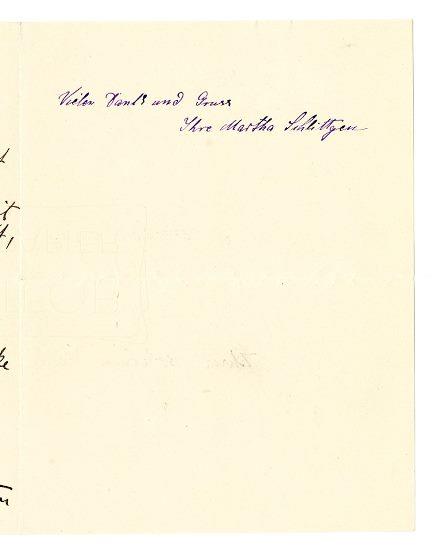 Vielen Dank und Gruss
Ihre Martha Schlittgen